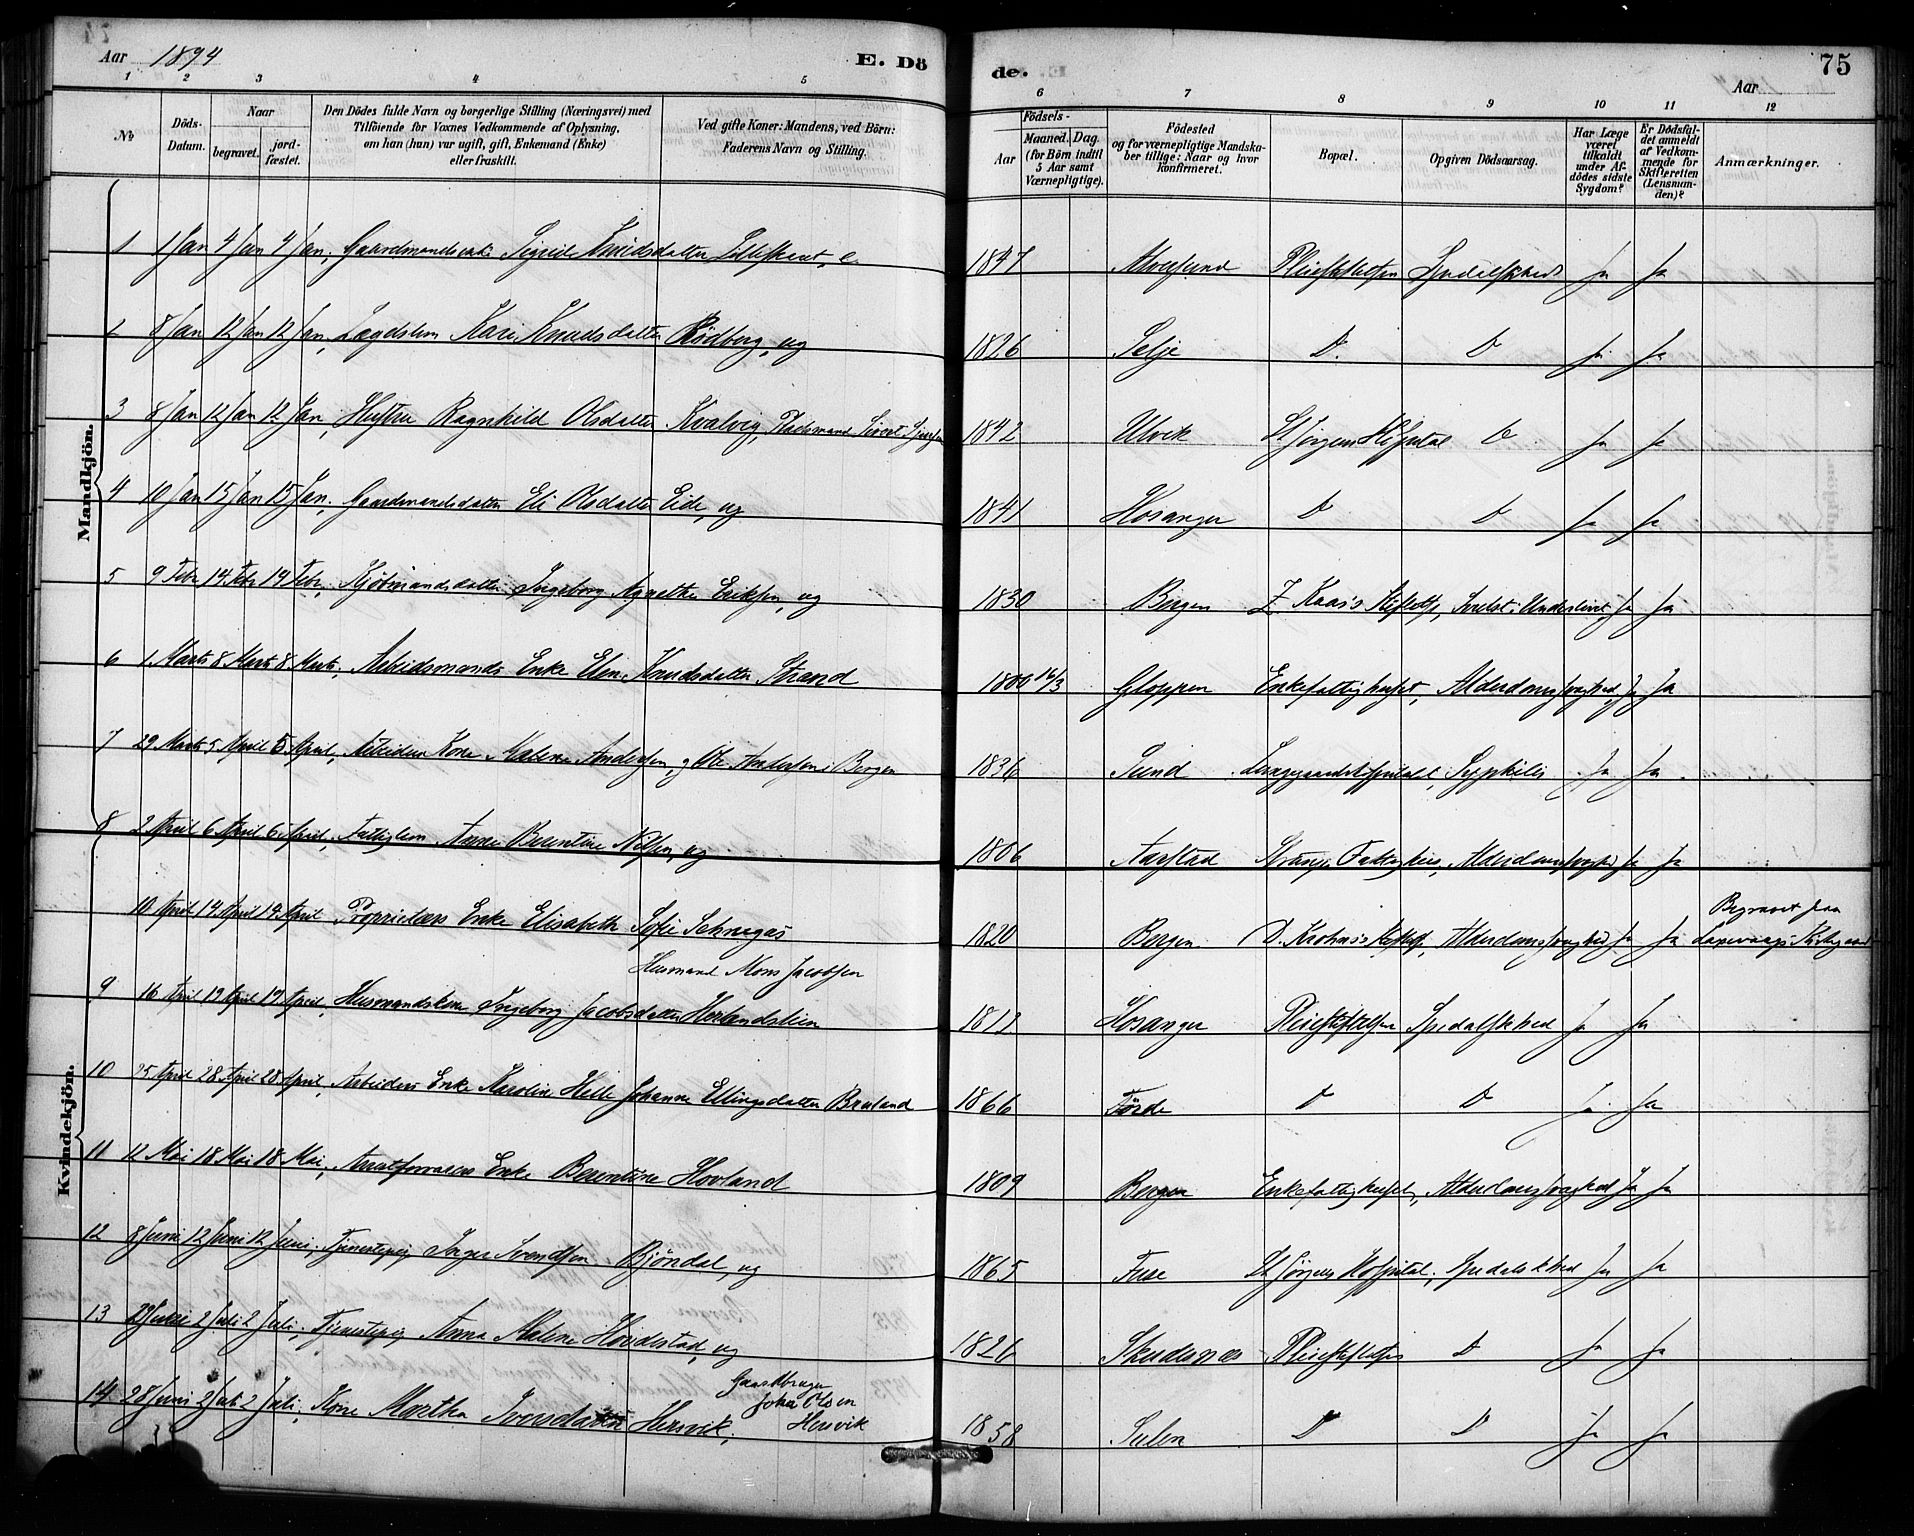 Aar 1894
E. Dö
de.
75
Aar
1 2 3 4 5 6 7 8 9 10 11 12
№
Döds-Datum.
Naar
begravet.
jord-fæstet.
Den Dödes fulde Navn og borgerlige Stilling (Næringsvei) med Tilföiende for Voxnes Vedkommende af Oplysning, om han (hun) var ugift, gift, Enkemand (Enke) eller fraskilt.
Ved gifte Koner: Mandens, ved Börn: Faderens Navn og Stilling.
Födsels-
Aar
Maaned. Dag.
(for Börn indtil 5 Aar samt Værnepligtige).
Födested og for værnepligtige Mandskaber tillige: Naar og hvor konfirmeret.
Bopæl.
Opgiven Dödsaarsag.
Har Læge været tilkaldt under Afdödes sidste Sygdom?
Er Dödsfaldet anmeldt af Vedkommende for Skifteretten (Lensmanden)?
Anmærkninger.
Mandkjön.
Kvindekjön.
1 1 Jan 4 Jan 4 Jan. Sigrid Knudsdatter e. 1847 Alversund Pleiestiftelsen Spedalskhed Ja Ja
2 8 Jan 12 Jan 12 Jan, Lægdslem Kari Knudsdatter Rödberg, ug 1826 Selje D. D Ja Ja
3 8 Jan 12 Jan 12 Jan, Hustru Ragnhild Olsdatter Kvalvig, Pladsmand Sivert 1842 Ulvik St Jörgens Hospital D Ja Ja
4 10 Jan 15 Jan 15 Jan, Gaardmandsdatter Eli Olsdatter Eide, ug 1841 Hosanger D D Ja Ja
5 9 Febr 14 Febr 14 Febr, Kjöbmandsdatter Ingeborg Agnethe Eriksen, ug 1830 Bergen Z Kaas's Stiftelse, Svulst i Underlivet, Ja Ja
6 1 Marts 8 Marts 8 Marts, Arbeidsmands Enke Elen Knudsdatter Strand 1800 16/3 Gloppen Enkefattighuset, Alderdomssvaghed, Ja Ja
7 29 Marts 5 April 5 April, Arbeiders Kone Malene Andersen, g Ole Andersen i Bergen 1836 Sund Lungegaardshospitalet, Syphilis Ja Ja
8 2 April 6 April 6 April, Fattiglem Anne Berentine Nilsen, ug 1806 Aarstad Stranges Fattighus, Alderdomssvaghed Ja Ja
10 April 14 April 14 April Proprietærs Enke Elisabeth Sofie Schnegas 1820 Bergen D. Krohns's Stiftelse, Alderdomssvaghed Ja Ja
Begravet paa
Laxevaags Kirkegaard
Husmand Mons Jacobsen
9 16 April 19 April 19 April, Husmandskone Ingeborg Jacobsdatter Herlandslien Hosanger Pleiestiftelsen Spedalskhed Ja Ja
10 25 April 28 April 28 April, Arbeiders Enke Karoline Helle Johanne Ellingsdatter Bruland 1866 Förde D D Ja Ja
11 12 Mai 18 Mai 18 Mai, Enke Berentine Hovland 1809 Bergen Enkefattighuset, Alderdomssvaghed Ja Ja
12 8 Juni 12 Juni 12 Juni, Tjenestepig Inger Svendsen Bjöndal, ug 1865 Fuse St Jörgens Hospital, Spedalskhed Ja Ja
13 2 Juli 2 Juli, Tjenestepig Anna Malene ug 1826 Skudenes Pleiestiftelsen D Ja Ja
Gaardbruger
Johan Olsen
Hersvik
14 28 Juni 2 Juli 2 Juli, Kone Martha Hersvik, 1858 Sulen D D Ja Ja